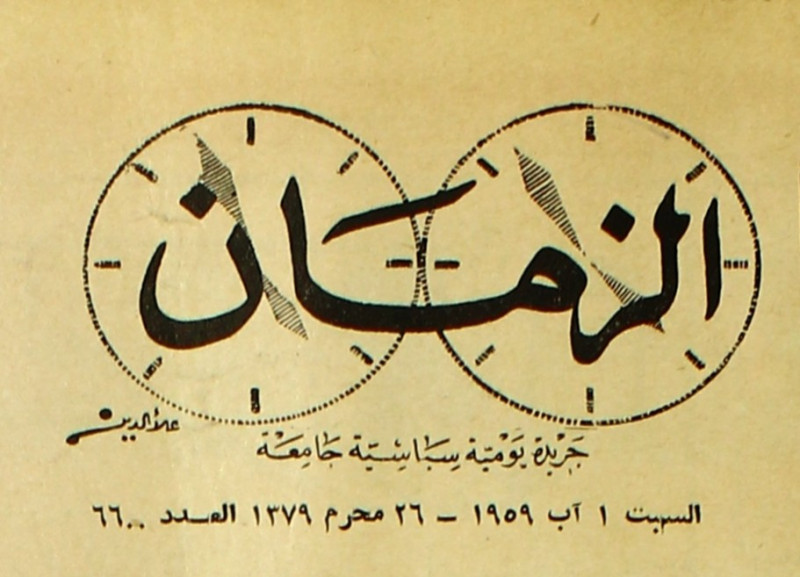 الزمان
علاء الدين
جَريْدة يَوْميَة سِيَاسْيَّة جَامِعَة
السبت ١ آب ١٩٥٩ - ٢٦ محرم ١٣٧٩ العدد ٦٦٠٠